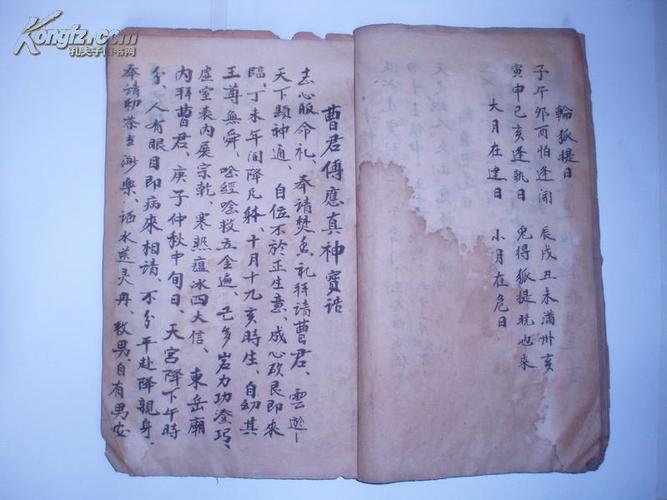 Kongfz.com
孔夫子旧书网
輪狐提日
子午夘酉怕逢闹 辰戌丑未满卅亥
寅申己亥逢執日 免得狐提晓也來
大月在建日 小月在危日
曹君傳應真神寳诰
志心皈命礼、奉請焚香、礼拜請曹君、雲遊
天下顕神通、自位不於正生意、成心改艮即來
臨、丁未年间降凡躰、十月十九亥時生、自幼其
王尊無舜 唸經唸救五金遍、己多岩力功澄巧、
虚室装内展宗乾、寒熱瘟冰四大信、東岳廟
内拜曹君、庚子仲秋中旬日、天宮降下午時
分、人有眼目即病來相請、不分平赴降親身、
奉請勅茶立渺樂、洒水送灵丹、救男自有男安